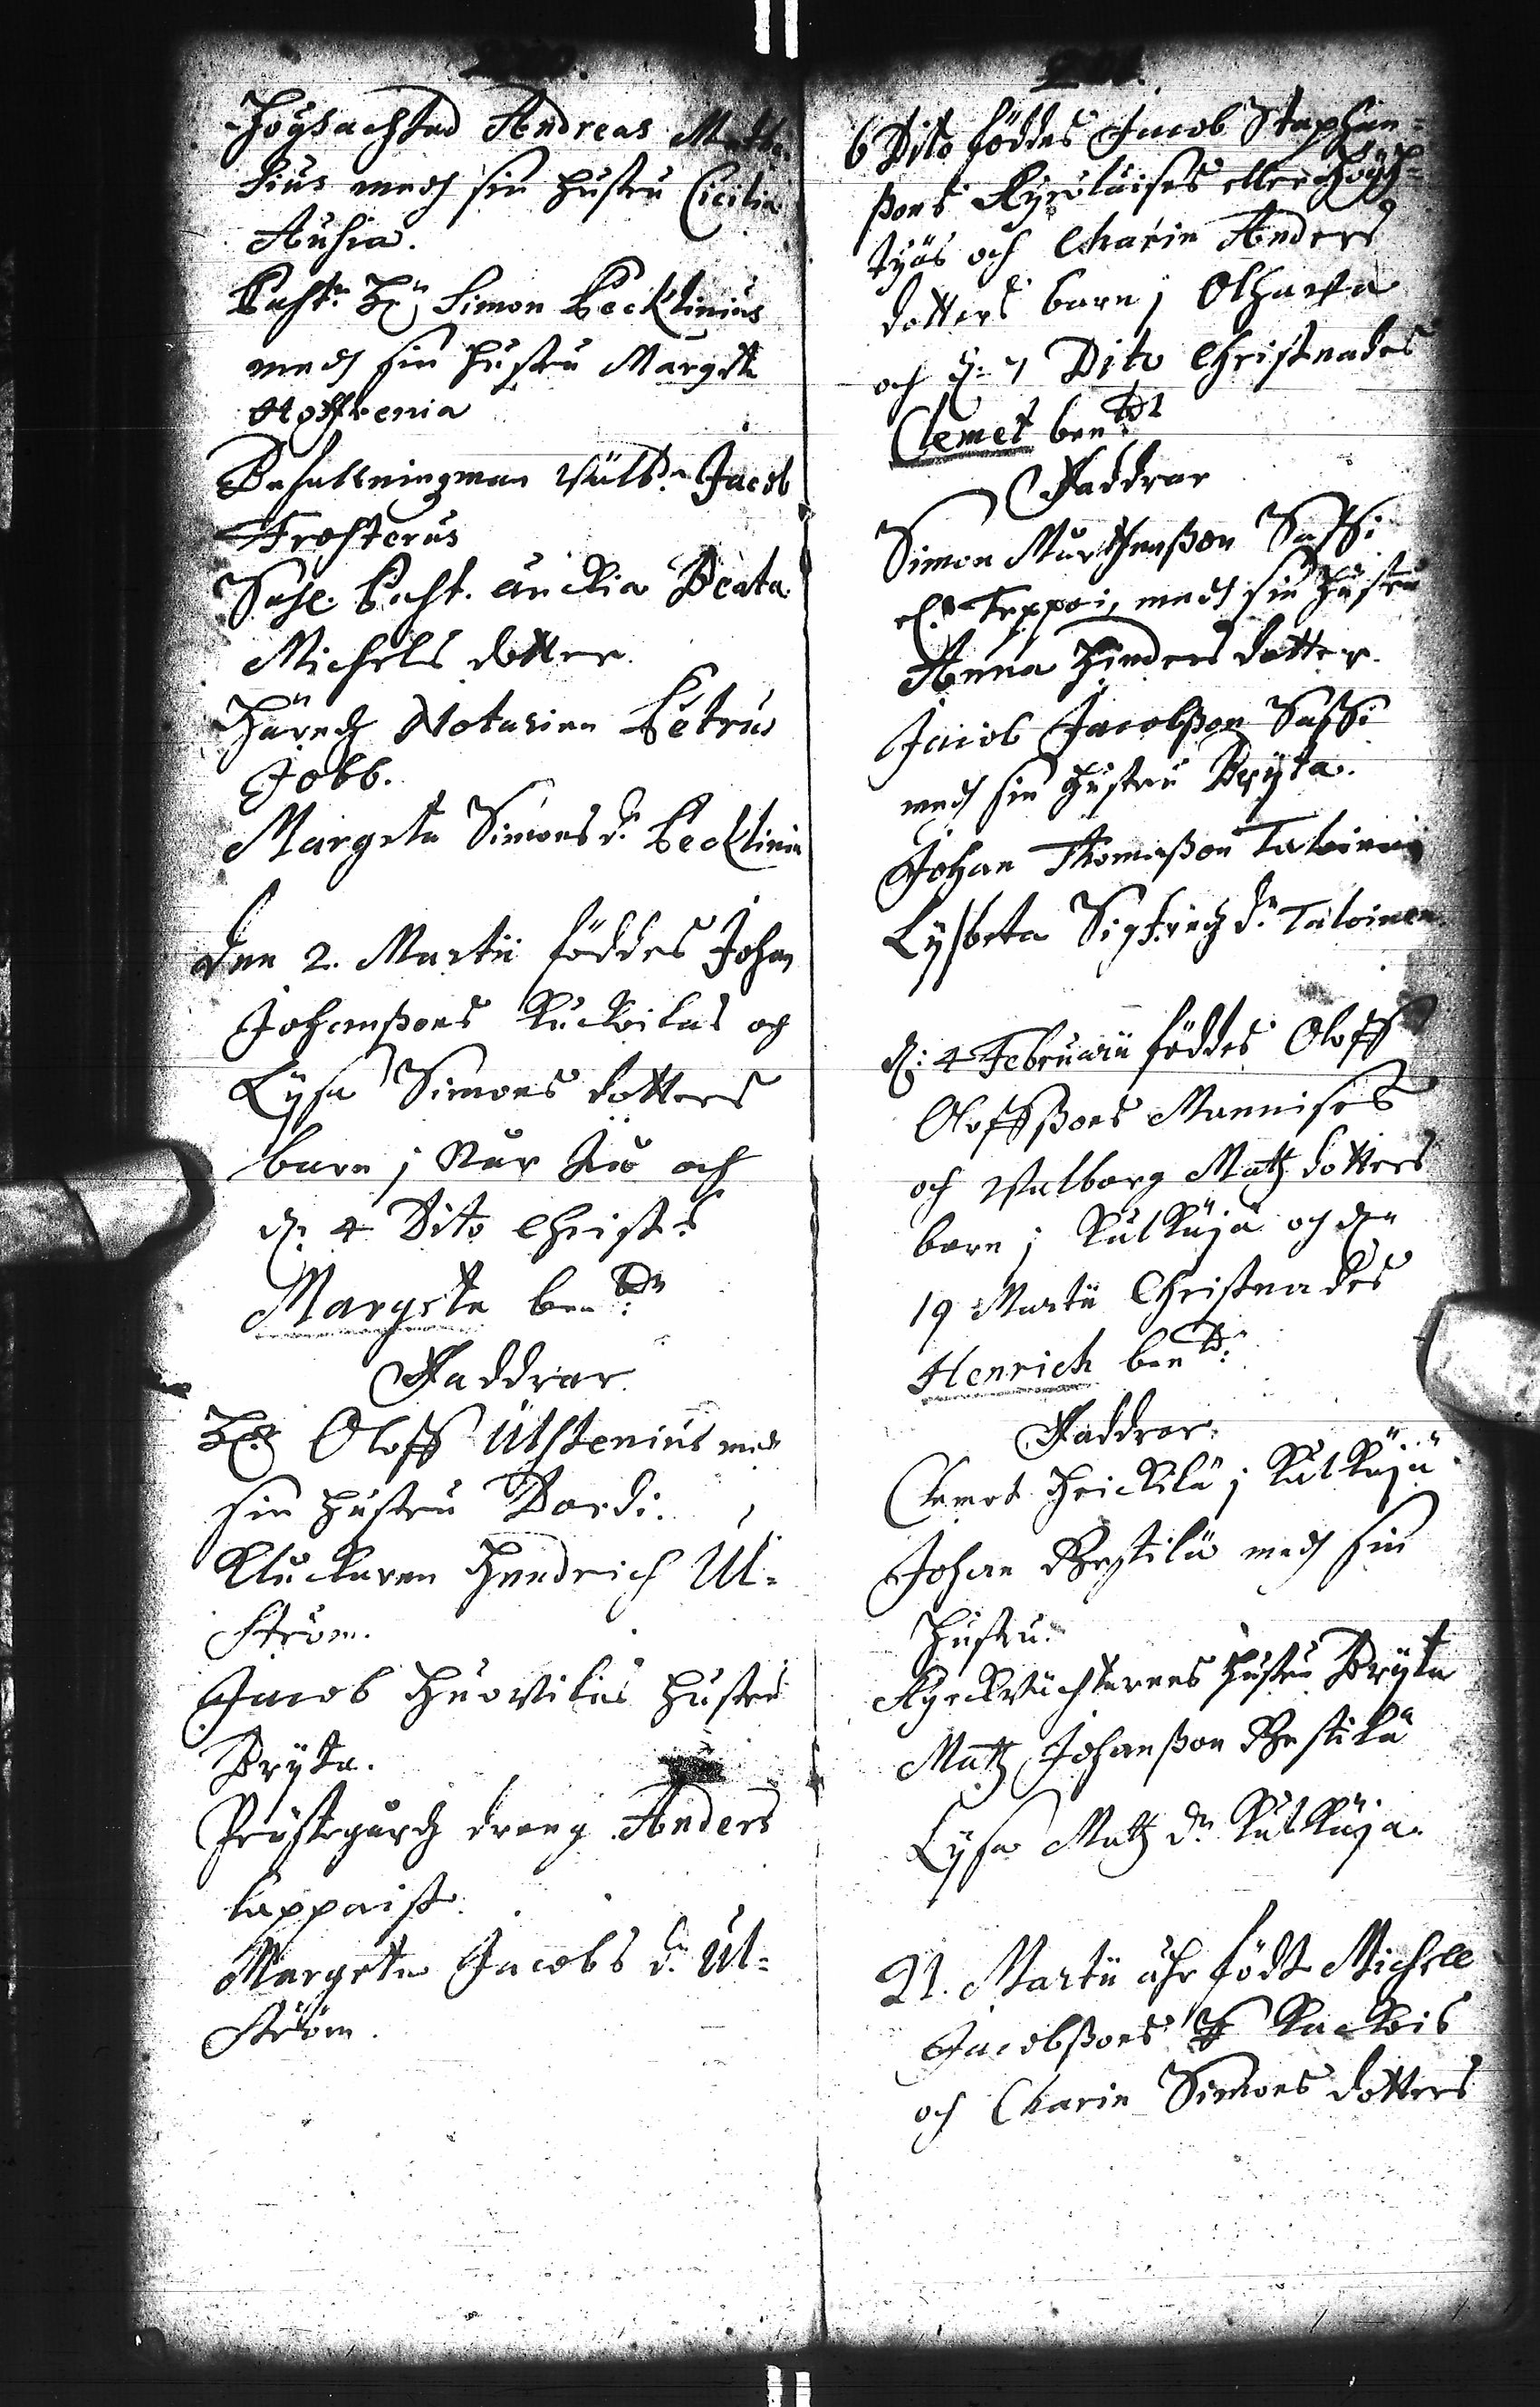 Höghachtad Andreas Matthe-
sius medh sin hustru Cicilia
Ausia.
Past: H: Simon Pecklinius
medh sin hustru Margeta
Hoffrenia
Befalningzman Wälb: Jacob
Frosterus
Sahl. Past. änckia Beata
Michels dotter.
Häredz Notarien Petrus
Jobb.
Margeta Simons d: Pecklinia
Den 2. Martii föddes Johan
Johanßons Kuckoilas och
Lysa Simons dotters
barn j och
d: 4 Dito Christ:
Margeta ben:
Faddrar.
H: Oloff Ulstenius med
sin hustru Dordi.
Kluckaren Hendrich Ul-
ström.
Jacob Huovilas hustru
Bryta.
Prästegårdz dreng Anders
Lappaist.
Margeta Jacobs d: Ul-
ström.
6 Dito föddes Jacob Staphan-
ßons eller
och Charin Anders
dotters barn j Olhawa
och d: 7 Dito Christnades
Clemet ben:
Faddrar
Simon Mårthenßon Sassi
el: Teppoi, medh sin hustru
Anna Hinders dotter.
Jacob Jacobßon Sassi
medh sin hustru Bryta.
Johan Thomaßon Taloinen
Lysbeta Sigfredz d: Taloinen.
d: 4 Februarii föddes Oloff
Oloffßons Mannises
och Walborg Matz dotters
barn j Kulkuja och den
19 Martii Christnades
Henrich ben:
Faddrar.
Clemet Heickilä j Kulkuja
Johan Bestilä medh sin
Hustru.
Kyrckwächterens hustru Bryta
Matz Johanßon Bestilä
Lysa Matz d: Kulkuja.
21. Martii ähr födt Michell
Jacobßons Kuckois
och Charin Simons dotters